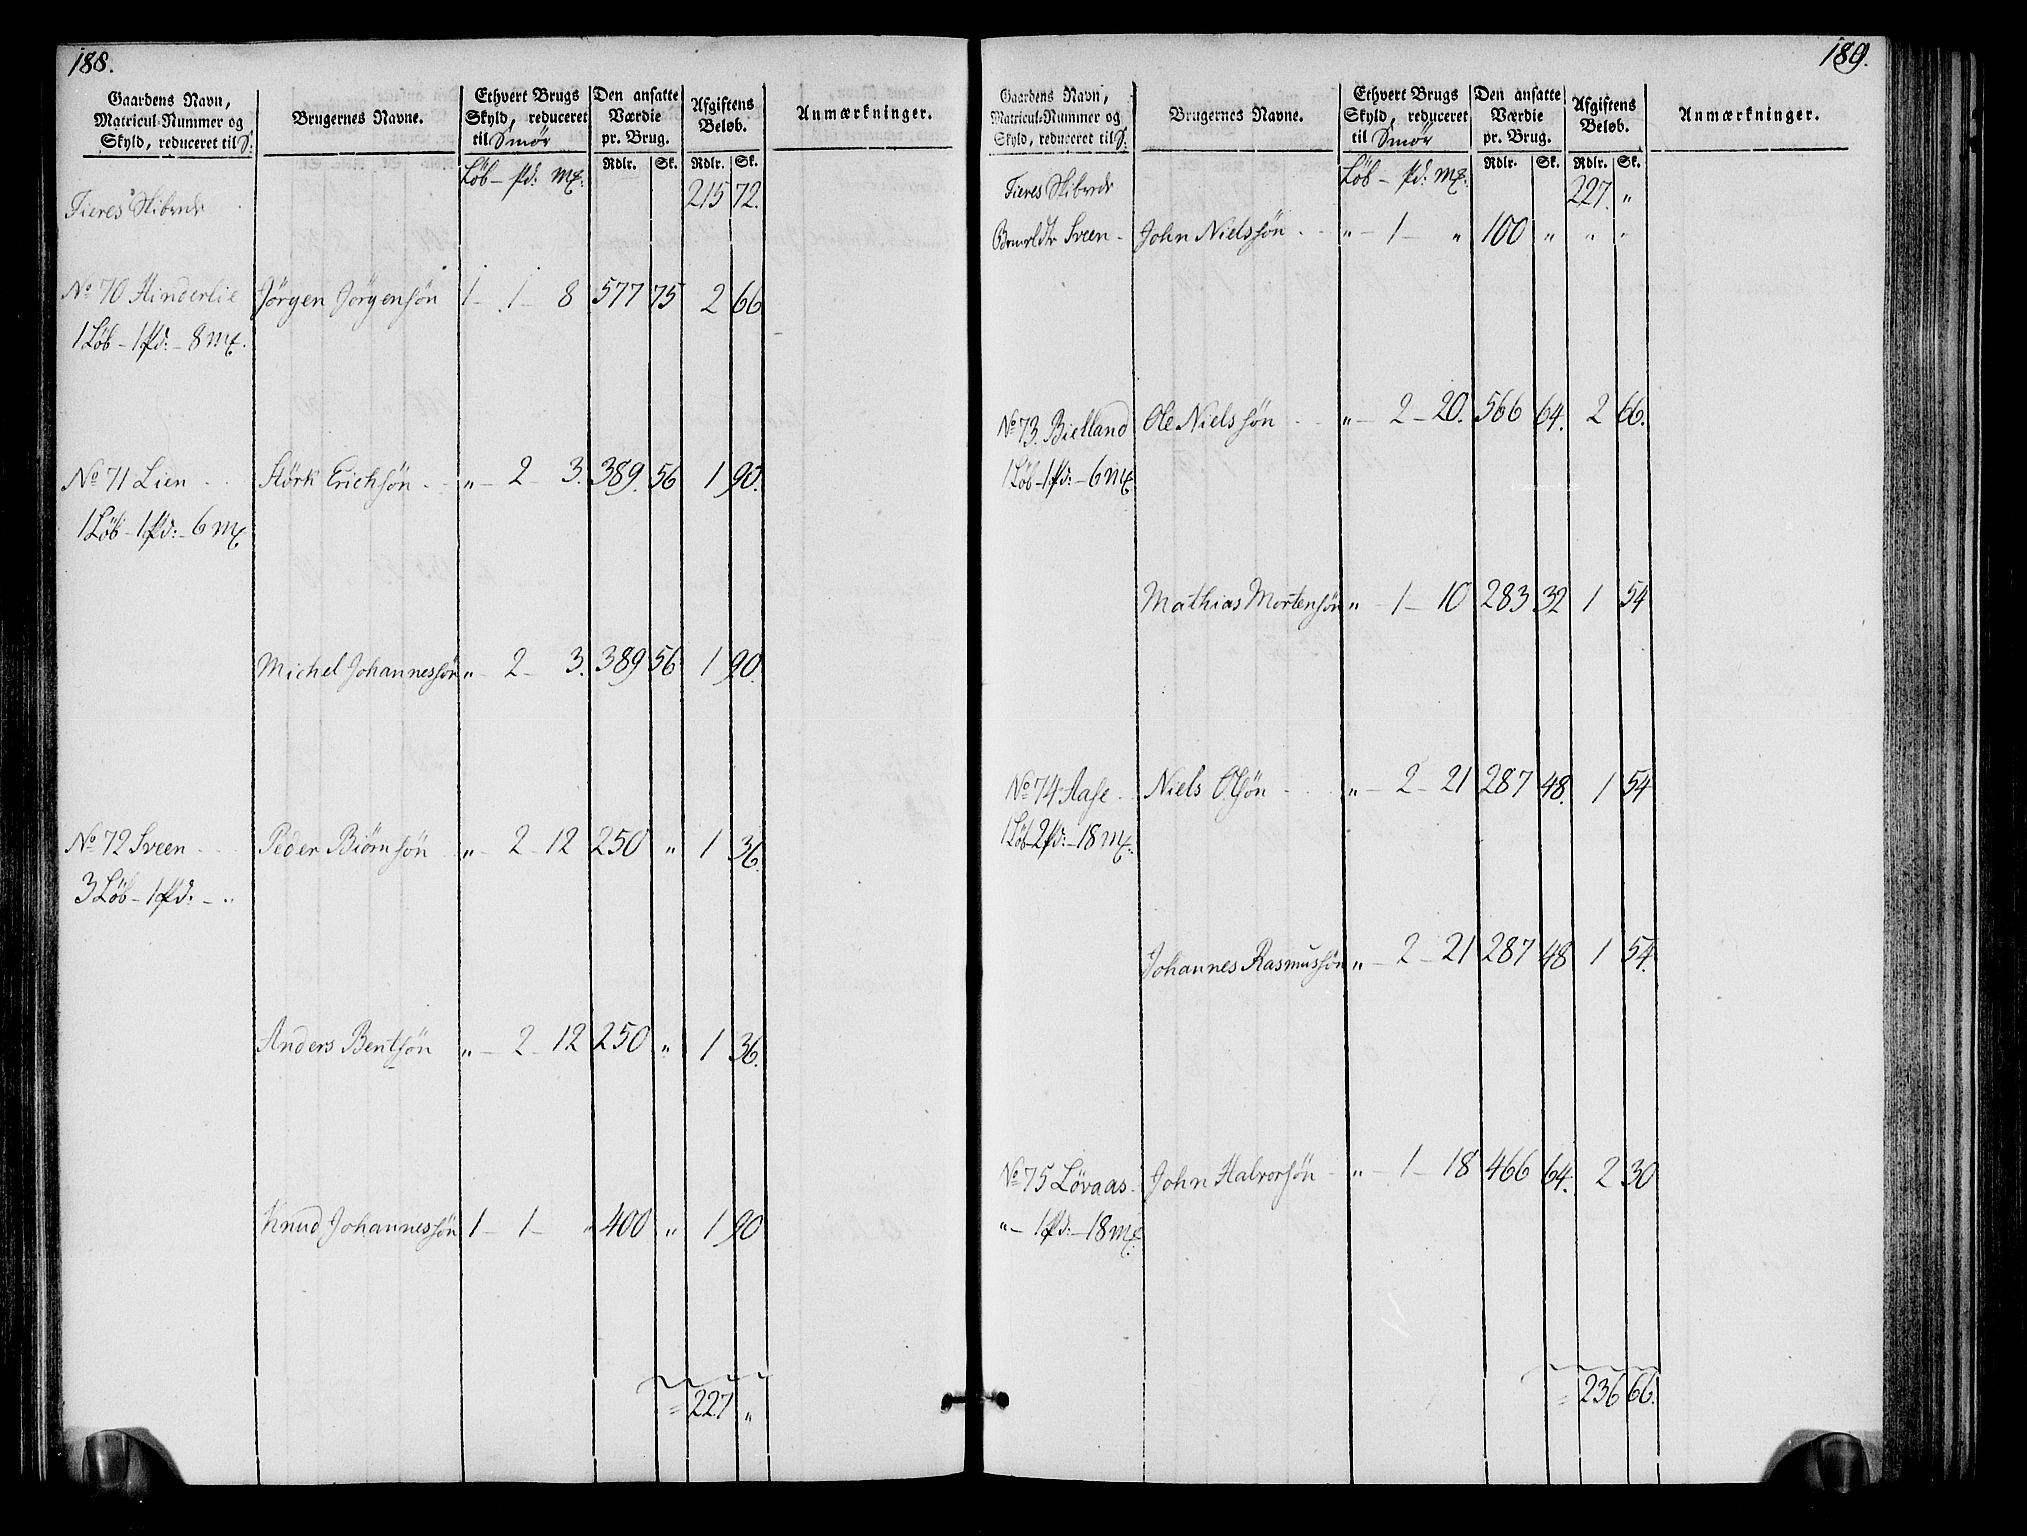 188.
Gaardens Navn, Matricul-Nummer og Skyld, reduceret til S: | Brugernes Navne. | Ethvert Brugs Skyld, reduceret til Smør | Den ansatte Værdie pr. Brug. | Afgiftens Beløb. | Anmærkninger.
Löb – pd: Mk: | Rdlr. | Sk. | Rdlr. | Sk.
Fieres Skibrede 215 72.
No 70 Hinderlie Jörgen Jörgensön 1 – 1 – 8 577 75 2 66
1 Löb – 1 pd: – 8 Mk.
No 71 Lien Störk Erichsön „ – 2 – 3. 389. 56 1 90.
1 Löb – 1 pd: – 6 Mk
Michel Johannessön „ – 2 – 3. 389 56 1 90.
No 72 Sveen Peder Biörnsön „ – 2 – 12 250 „ 1 36.
3 Löb – 1 pd: – „
Anders Bentsön „ – 2 – 12 250 „ 1 36.
Knud Johannessön 1 – 1 – „ 400 „ 1 90
= 227 „
189.
Gaardens Navn, Matricul-Nummer og Skyld, reduceret til S: | Brugernes Navne. | Ethvert Brugs Skyld, reduceret til Smør | Den ansatte Værdie pr. Brug. | Afgiftens Beløb. | Anmærkninger.
Löb – pd: Mk: | Rdlr. | Sk. | Rdlr. | Sk.
Fieres Skibrede 227. „
Sveen – John Nielssön „ – 1 – „ 100 „ „ „
No 73. Bielland Ole Nielssön „ – 2 – 20. 566 64. 2 66.
1 Löb – 1 pd: – 6 Mk
Mathias Mortensön „ – 1 – 10 283 32 1 54
No 74 Aase Niels Olsön „ – 2 – 21 287 48. 1 54
1 Löb – 2 pd: – 18 Mk.
Johannes Rasmussön „ – 2 – 21 287 48 1 54.
No 75 Lövaas John Halvorsön „ – 1 – 18 466 64. 2 30
„ – 1 pd: – 18 Mk.
= 236 66.